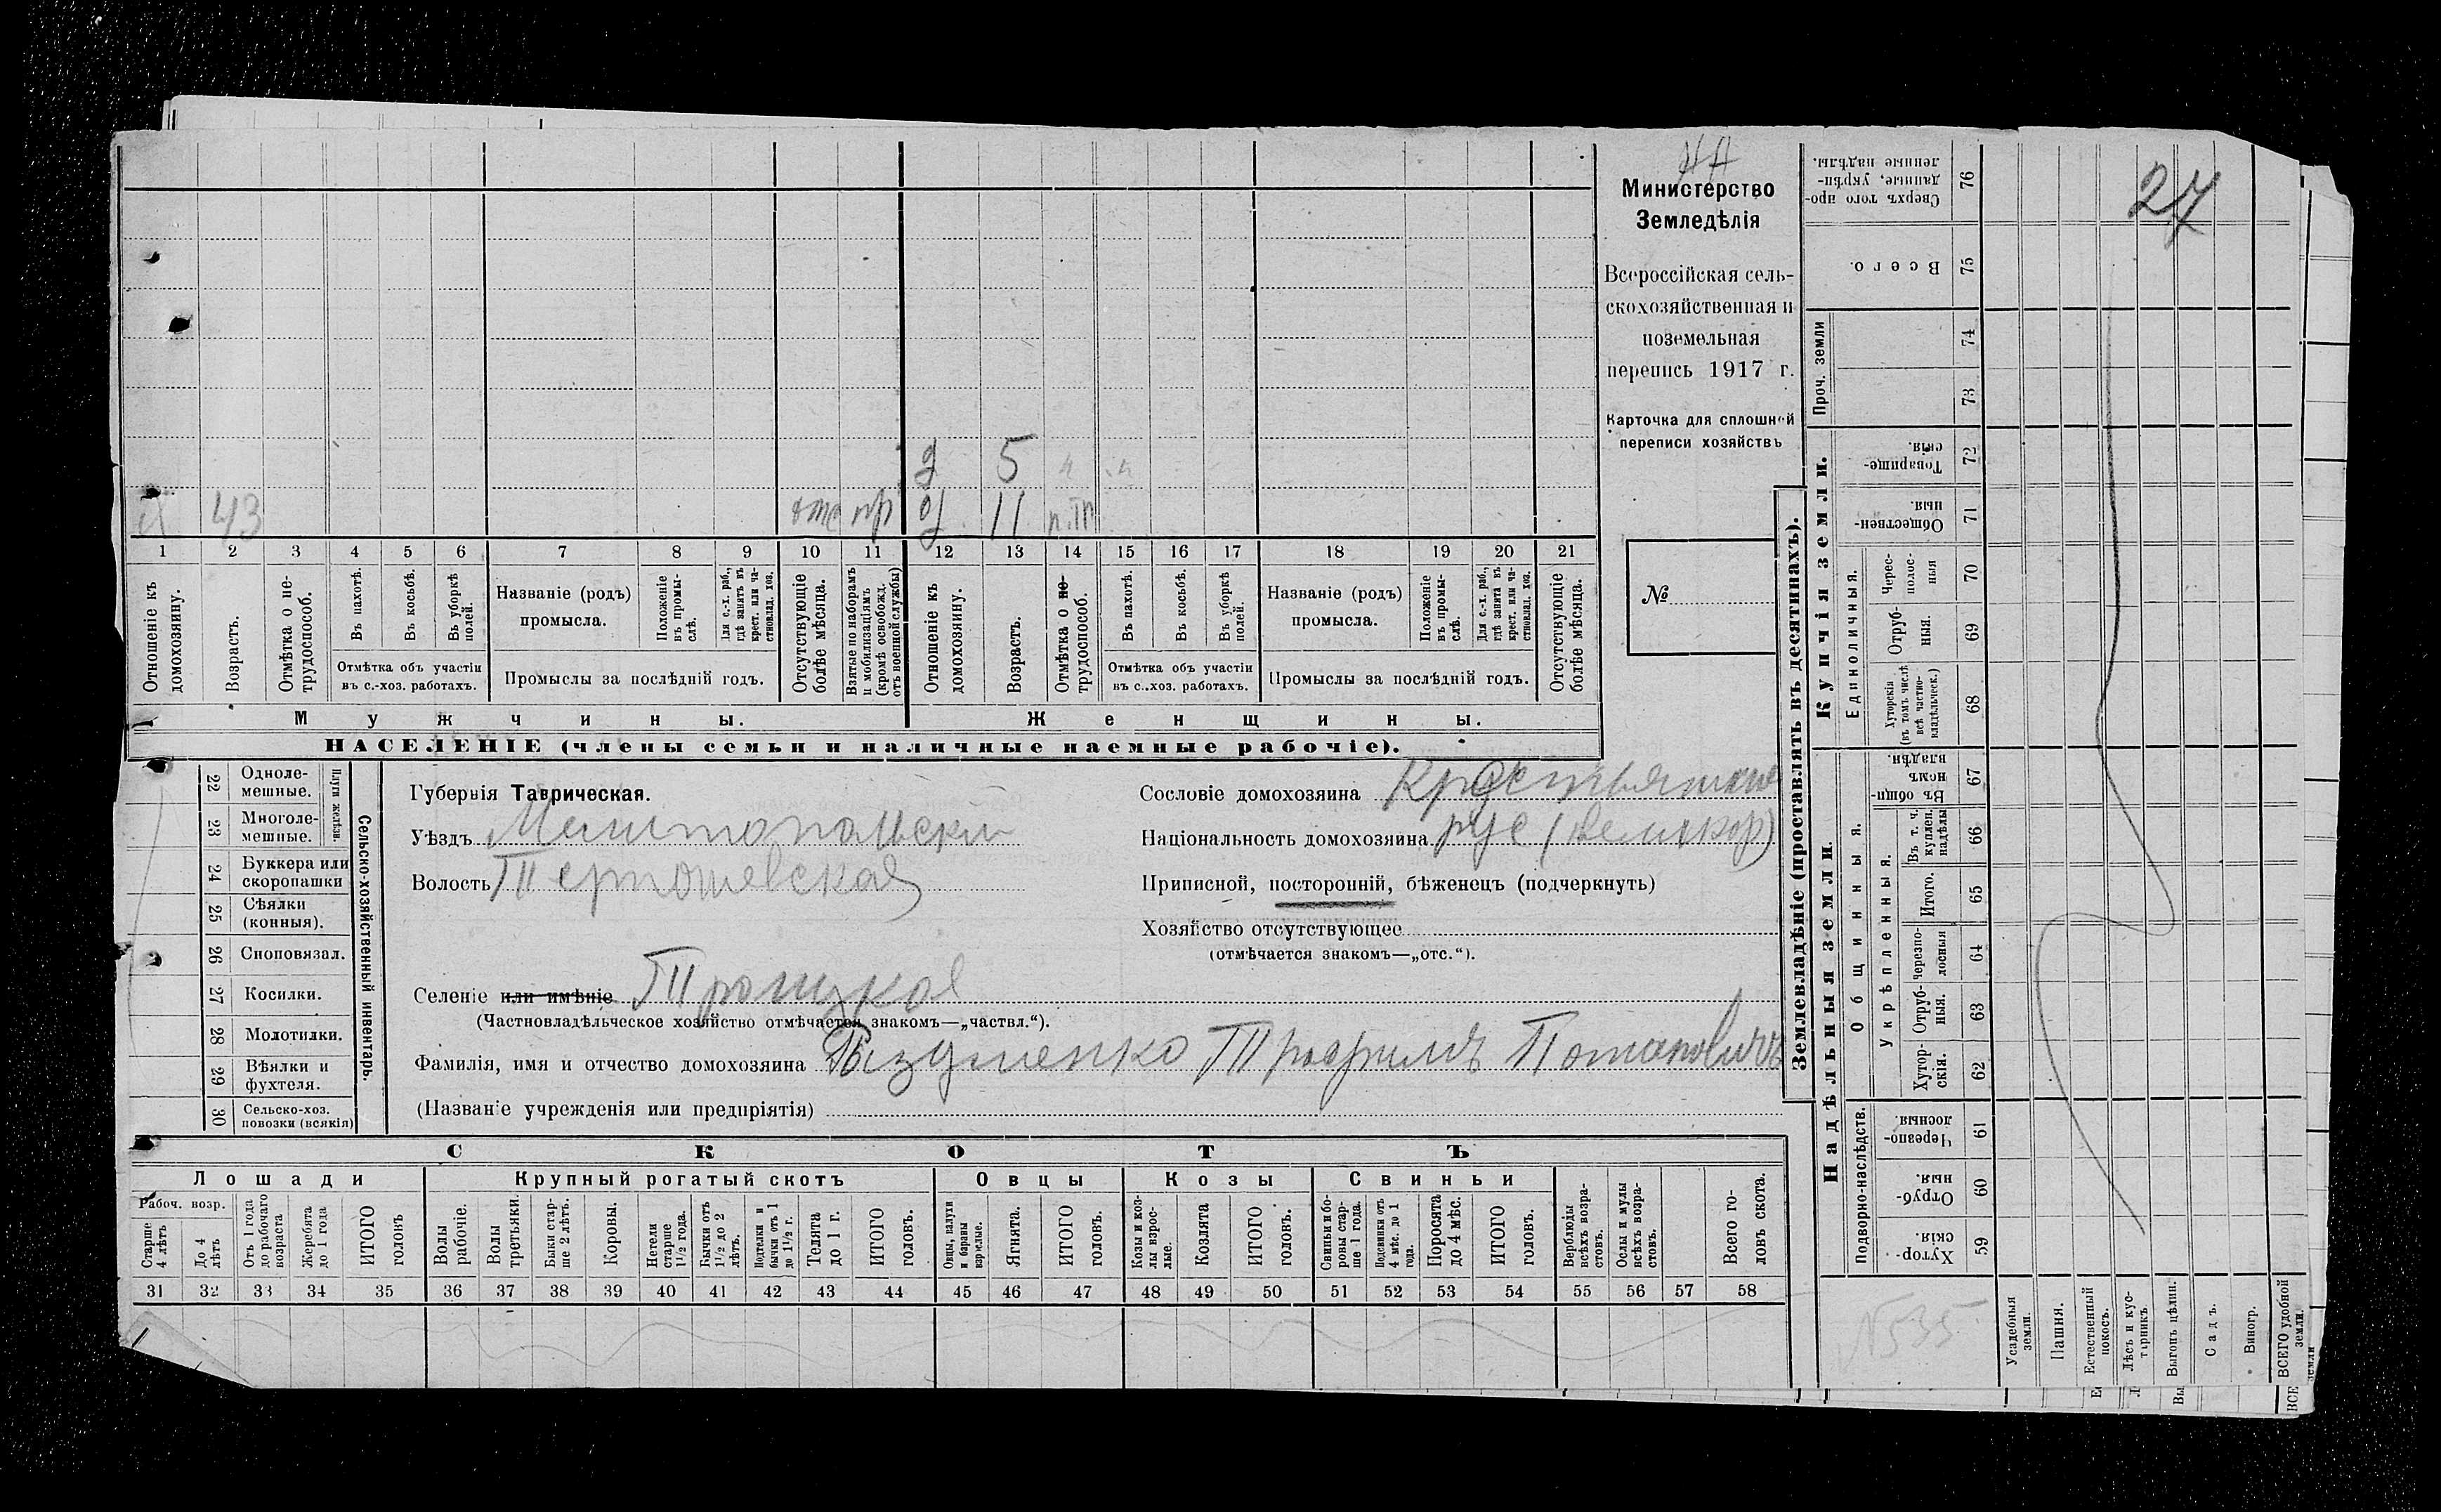 НН
Министерство
Земледѣлія
Всероссійская сель-
скохозяйственная и
поземельная
перепись 1917 г.
Карточка для сплошной
переписи хозяйствъ
№
д 5
Я 43 отс пр д 11
1 2 3 4 5 6 7 8 9 10 11 12 13 14 15 16 17 18 19 20 21
Отношеніе къ домохозяину.
Возрастъ.
Отмѣтка о не-
трудоспособ.
Въ пахотѣ.
Въ косьбѣ.
Въ уборкѣ
полей.
Отмѣтка объ участіи
въ с.-хоз. работахъ.
Названіе (родъ)
промысла.
Положеніе
въ промы-
слѣ.
Для с.-х. раб.,
гдѣ занятъ въ
крест. или ча-
стновлад. хоз.
Промыслы за послѣдній годъ.
Отсутствующіе
болѣе мѣсяца.
Взятые по наборамъ
и мобилизаціямъ
(кромѣ освобожд.
отъ военной службы)
Отношеніе къ
домохозяину.
Возрастъ.
Отмѣтка о не-
трудоспособ.
Въ пахотѣ.
Въ косьбѣ.
Въ уборкѣ
полей.
Отмѣтка объ участіи
въ с.-хоз. работахъ.
Названіе (родъ)
промысла.
Положеніе
въ промы-
слѣ.
Для с.-х. раб.,
гдѣ занята въ
крест. или ча-
стновлад. хоз.
Промыслы за послѣдній годъ.
Отсутствующіе
болѣе мѣсяца.
Мужчины. Женщины.
НАСЕЛЕНІЕ (члены семьи и наличные наемные рабочіе).
22 Одноле-
мешные.
23 Многоле-
мешные.
Плуги желѣзн.
24 Буккера или
скоропашки
25 Сѣялки
(конныя).
26 Сноповязал.
27 Косилки.
28 Молотилки.
29 Вѣялки и
фухтеля.
30 Сельско-хоз.
повозки (всякія)
Сельско-хозяйственный инвентарь.
Губернія Таврическая.
Уѣздъ Мелитопольскій
Волость
Селеніе или имѣніе Троицкое
(Частновладѣльческое хозяйство отмѣчается знакомъ—„частвл.“).
Фамилія, имя и отчество домохозяина Трофимъ Потаповичъ
(Названіе учрежденія или предпріятія)
Сословіе домохозяина Крестьянинъ
Національность домохозяина рус (великор)
Приписной, посторонній, бѣженецъ (подчеркнуть)
Хозяйство отсутствующее
(отмѣчается знакомъ—„отс.“).
СКОТЪ
Лошади Крупный рогатый скотъ Овцы Козы Свиньи
Рабоч. возр.
Старше
4 лѣтъ
До 4
лѣтъ
Отъ 1 года
до рабочаго
возраста
Жеребята
до 1 года
ИТОГО
головъ
Волы
рабочіе.
Волы
третьяки.
Быки стар-
ше 2 лѣтъ.
Коровы.
Нетели
старше
1 1/2 года.
Бычки отъ
1 1/2 до 2
лѣтъ.
Подтелки и
бычки отъ 1
до 1 1/2 г.
Телята
до 1 г.
ИТОГО
головъ.
Овцы, валухи
и бараны
взрослые.
Ягнята.
ИТОГО
головъ.
Козы и коз-
лы взрос-
лые.
Козлята
ИТОГО
головъ.
Свиньи и бо-
ровы стар-
ше 1 года.
Подсвинки отъ
4 мѣс. до 1
года.
Поросята
до 4 мѣс.
ИТОГО
головъ.
Верблюды
всѣхъ возра-
стовъ.
Ослы и мулы
всѣхъ возра-
стовъ.
Всего го-
ловъ скота.
31 32 33 34 35 36 37 38 39 40 41 42 43 44 45 46 47 48 49 50 51 52 53 54 55 56 57 58
Землевладѣніе (проставлять въ десятинахъ).
27
Сверхъ того про-
данные, укрѣп-
ленные надѣлы. 76
Всего. 75
Проч. земли 74
73
Купчія земли.
Товарище-
скія. 72
Обществен-
ныя. 71
Единоличныя.
Черес-
полос-
ныя 70
Отруб-
ныя. 69
Хуторскія
(въ томъ числѣ
всѣ частно-
владѣльческ.) 68
Надѣльныя земли.
Общинныя.
Въ общи-
нномъ
владѣн. 67
Укрѣпленныя.
Въ т. ч.
куплен.
надѣлы 66
Итого. 65
Черезпо-
лосныя 64
Отруб-
ныя. 63
Хутор-
скія. 62
Подворно-наслѣдств.
Черезпо-
лосныя. 61
Отруб-
ныя. 60
Хутор-
скія. 59
N535
Усадебныя
земли.
Пашня.
Естественный
покосъ.
Лѣсъ и кус-
тарникъ.
Выгонъ цѣлин.
Садъ.
Виногр.
ВСЕГО удобной
земли.